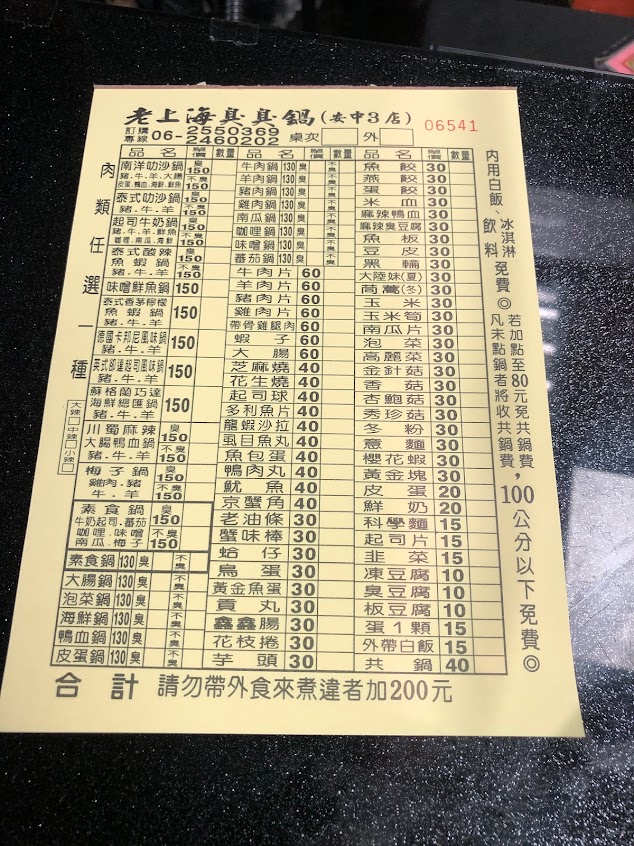 老上海臭臭鍋(安中3店)
訂購專線 06-2550369
06-2460202
桌次 外
06541
品名 單價 數量
肉類任選一種
大辣 中辣 小辣
南洋叻沙鍋 臭 150
豬.牛.羊.大腸
皮蛋.鴨血.海鮮.鮮魚
泰式叻沙鍋 不臭 150
豬.牛.羊
起司牛奶鍋 臭 150
豬.牛.羊.鮮魚
咖哩.南瓜.海鮮 不臭
泰式酸辣 臭 150
魚蝦鍋
豬.牛.羊 不臭
味噌鮮魚鍋 150
泰式香茅檸檬
魚蝦鍋 150
豬.牛.羊
德國卡邦尼風味鍋 150
豬.牛.羊
英式卻達起司風味鍋 150
豬.牛.羊
蘇格蘭巧達
海鮮總匯鍋 150
豬.牛.羊
川蜀麻辣 臭 150
大腸鴨血鍋
豬.牛.羊 不臭
梅子鍋 臭 150
雞肉.豬
牛.羊 不臭
素食鍋 臭 150
牛奶起司.番茄
咖哩.味噌
南瓜.梅子 不臭
素食鍋 130 臭 不臭
大腸鍋 130 臭 不臭
泡菜鍋 130 臭 不臭
海鮮鍋 130 臭 不臭
鴨血鍋 130 臭 不臭
皮蛋鍋 130 臭 不臭
品名 單價 數量
牛肉鍋 130 臭 不臭
羊肉鍋 130 臭 不臭
豬肉鍋 130 臭 不臭
雞肉鍋 130 臭 不臭
南瓜鍋 130 臭 不臭
咖哩鍋 130 臭 不臭
味噌鍋 130 臭 不臭
蕃茄鍋 130 臭 不臭
牛肉片 60
羊肉片 60
豬肉片 60
雞肉片 60
帶骨雞腿肉 60
蝦子 60
大腸 60
芝麻燒 40
花生燒 40
起司球 40
多利魚片 40
龍蝦沙拉 40
虱目魚丸 40
魚包蛋 40
鴨肉丸 40
魷魚 40
京蟹角 40
老油條 30
蟹味棒 30
蛤仔 30
鳥蛋 30
黃金魚蛋 30
貢丸 30
鑫鑫腸 30
花枝捲 30
芋頭 30
品名 單價 數量
魚餃 30
燕餃 30
蛋餃 30
米血 30
麻辣鴨血 30
麻辣臭豆腐 30
魚板 30
豆皮 30
黑輪 30
大陸妹(夏) 30
茼蒿(冬) 30
玉米 30
玉米筍 30
南瓜片 30
泡菜 30
高麗菜 30
金針菇 30
香菇 30
杏鮑菇 30
秀珍菇 30
冬粉 30
意麵 30
櫻花蝦 30
黃金塊 30
皮蛋 20
鮮奶 20
科學麵 15
起司片 15
韭菜 15
凍豆腐 10
臭豆腐 10
板豆腐 10
蛋1顆 15
外帶白飯 15
共鍋 40
內用白飯、飲料、冰淇淋免費◎
凡未點鍋者將收共鍋費,
若加點至80元免共鍋費,
100公分以下免費◎
合計 請勿帶外食來煮違者加200元